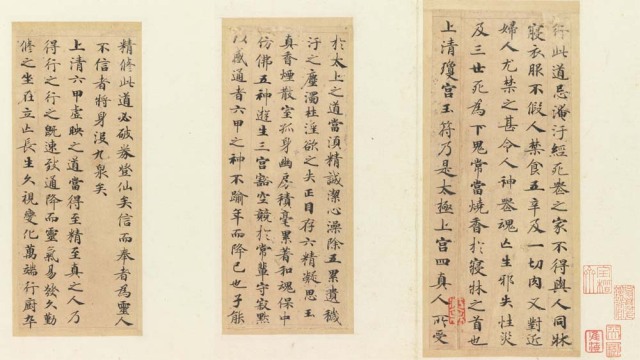 行此道忌淹汙經死喪之家不得與人同牀
寢衣服不假人禁食五辛及一切肉又對近
婦人尤禁之甚令人神喪魂亡生邪失性災
及三世死為下鬼常當燒香於寢牀之首也
上清瓊宮玉符乃是太極上宮四真人所受
於太上之道當須精誠潔心澡除五累遺穢
汙之塵濁杜淫欲之失正目存六精凝思玉
真香煙散室孤身幽房積毫累著和魂保中
仿佛五神遊生三宮豁空競於常輩守寂默
以感通者六甲之神不踰年而降已也子能
精修此道必破券登仙矣信而奉者為靈人
不信者將身沒九泉矣
上清六甲虛映之道當得至精至真之人乃
得行之行之既速致道降而靈氣易發久勤
修之坐在立亡長生久視變化萬端行廚卒